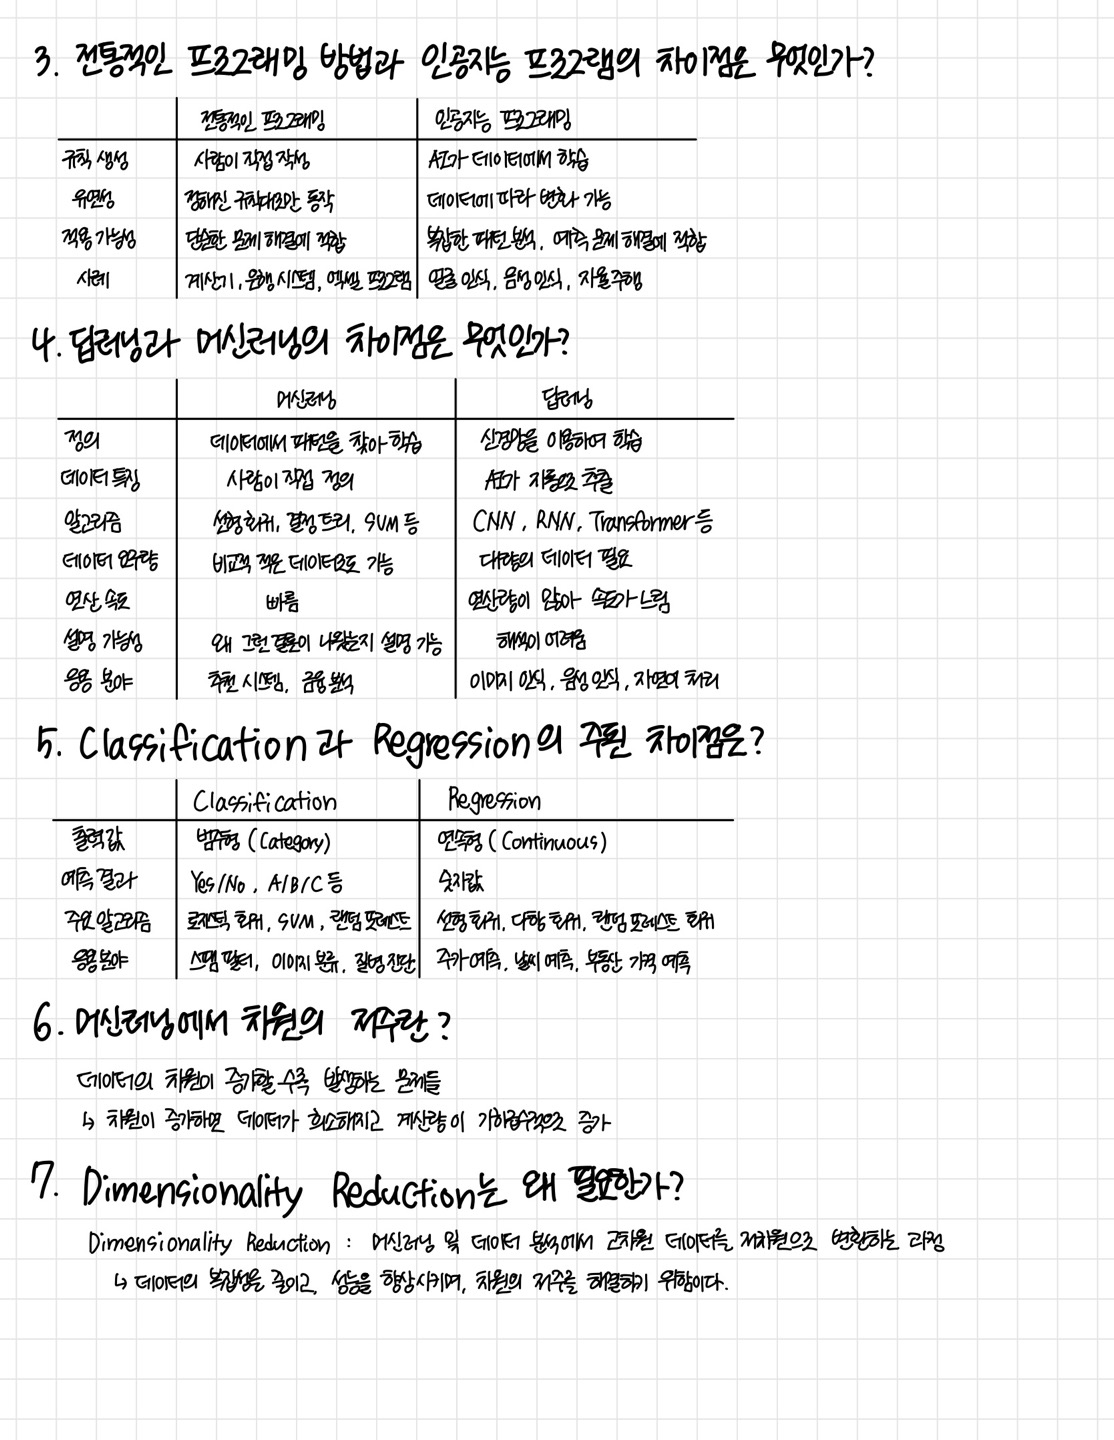 3. 전통적인 프로그래밍 방법과 인공지능 프로그램의 차이점은 무엇인가?
전통적인 프로그래밍 인공지능 프로그래밍
규칙 생성 사람이 직접 작성 AI가 데이터에서 학습
유연성 정해진 규칙대로만 동작 데이터에 따라 변화 가능
적용 가능성 단순한 문제 해결에 적합 복잡한 패턴 분석, 예측 문제 해결에 적합
사례 계산기, 은행 시스템, 엑셀 프로그램 얼굴 인식, 음성 인식, 자율주행
4. 딥러닝과 머신러닝의 차이점은 무엇인가?
머신러닝 딥러닝
정의 데이터에서 패턴을 찾아 학습 신경망을 이용하여 학습
데이터 특징 사람이 직접 정의 AI가 자동으로 추출
알고리즘 선형 회귀, 결정 트리, SVM 등 CNN, RNN, Transformer 등
데이터 요구량 비교적 적은 데이터으로도 가능 대량의 데이터 필요
연산 속도 빠름 연산량이 많아 속도가 느림
설명 가능성 왜 그런 결론이 나왔는지 설명 가능 해석이 어려움
응용 분야 추천 시스템, 금융 분석 이미지 인식, 음성 인식, 자연어 처리
5. Classification과 Regression의 주된 차이점은?
Classification Regression
출력값 범주형 (Category) 연속형 (Continuous)
예측 결과 Yes/No, A/B/C 등 숫자값
주요 알고리즘 로지스틱 회귀, SVM, 랜덤 포레스트 선형 회귀, 다항 회귀, 랜덤 포레스트 회귀
응용 분야 스팸 필터, 이미지 분류, 질병 진단 주가 예측, 날씨 예측, 부동산 가격 예측
6. 머신러닝에서 차원의 저주란?
데이터의 차원이 증가할 수록 발생하는 문제들
↳ 차원이 증가하면 데이터가 희소해지고 계산량이 기하급수적으로 증가
7. Dimensionality Reduction는 왜 필요한가?
Dimensionality Reduction : 머신러닝 및 데이터 분석에서 고차원 데이터를 저차원으로 변환하는 과정
↳ 데이터의 복잡성을 줄이고, 성능을 향상시키며, 차원의 저주를 해결하기 위함이다.